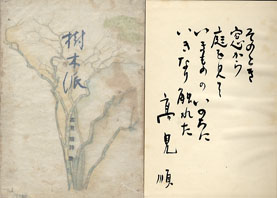 樹木派
高見順詩集
そのとき
窓から
庭を見て
いきものの いのちに
いきなり 触れた
高見順